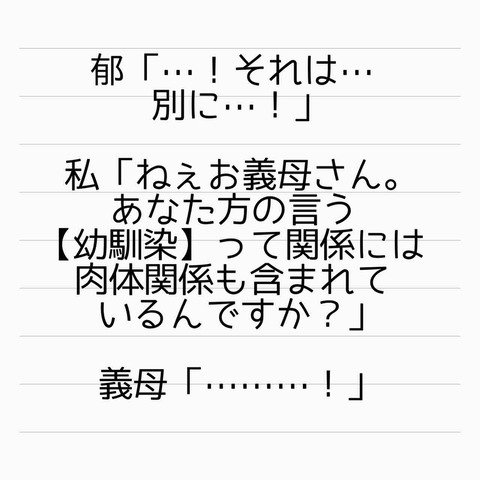 郁「…！それは…
別に…！」
私「ねぇお義母さん。
あなた方の言う
【幼馴染】って関係には
肉体関係も含まれて
いるんですか？」
義母「………！」